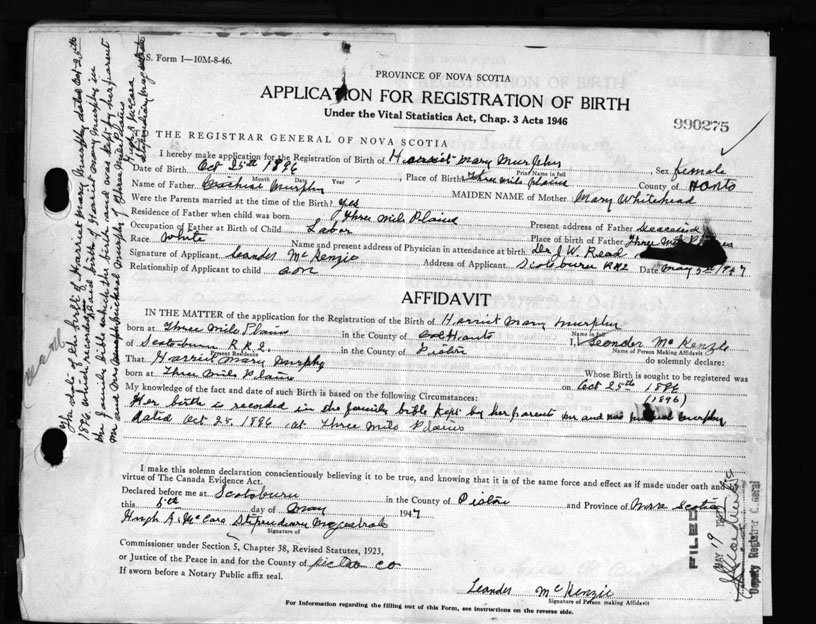 S. Form 1—10M-8-46.
PROVINCE OF NOVA SCOTIA
APPLICATION FOR REGISTRATION OF BIRTH
Under the Vital Statistics Act, Chap. 3 Acts 1946
990275
THE REGISTRAR GENERAL OF NOVA SCOTIA
I hereby make application for the Registration of Birth of Harriet Mary Murphy, Sex female
Print Name in full
Date of Birth Oct 25th 1896, Place of Birth Three mile plains County of Hants
Month Date Year
Name of Father Murphy MAIDEN NAME of Mother Mary Whitehead
Were the Parents married at the time of Birth? yes
Residence of Father when child was born Three Mile Plains Present address of Father
Occupation of Father at Birth of Child Labor Place of birth of Father Three Mile Plains
Race White Name and present address of Physician in attendance at birth Dr J. W. Read
Signature of Applicant Leander McKenzie Address of Applicant Scotsburn RR2 Date May 5th 1947
Relationship of Applicant to child son
AFFIDAVIT
IN THE MATTER of the application for the Registration of the Birth of Harriet Mary Murphy
Name in full
born at Three Mile Plains in the County of Hants I, Leander McKenzie
Name of Person Making Affidavit
of Scotsburn R.R.2. in the County of Pictou do solemnly declare:
Present Residence
That Harriet Mary Murphy Whose Birth is sought to be registered was
born at Three Mile Plains on Oct 25th 1896
(1896)
My knowledge of the fact and date of such Birth is based on the following Circumstances:
Her birth is recorded in the family bible kept by her parent Mr and Mrs Murphy
dated Oct 25. 1896 at Three Mile Plains
I make this solemn declaration conscientiously believing it to be true, and knowing that it is of the same force and effect as if made under oath and
virtue of The Canada Evidence Act.
Declared before me at Scotsburn in the County of Pictou and Province of Nova Scotia
this 5th day of May 1947
Hugh A. McCara Stipendiary Magistrate
Signature of
Commissioner under Section 5, Chapter 38, Revised Statutes, 1923,
or Justice of the Peace in and for the County of Pictou Co
If sworn before a Notary Public affix seal.
Leander McKenzie
Signature of Person making Affidavit
For Information regarding the filling out of this Form, see instructions on the reverse side.
The date of the birth of Harriet Mary Murphy dated Oct 25th
1896 which records
said birth of Harriet Mary Murphy in
the family bible which the birth and was kept by her parent
Mr and Mrs Michael Murphy of Three Mile Plains
Hugh A McCara
Stipendiary Magistrate
FILED
MAY 19 1947
Deputy Registrar General